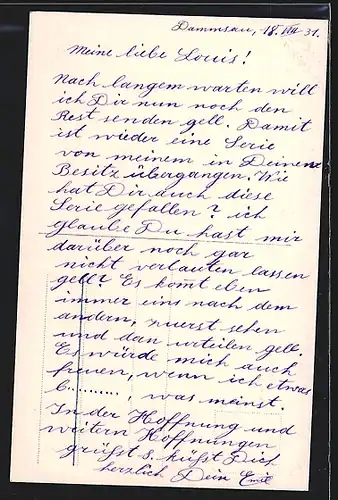 Dammsau, 18. VIII 31.
Meine liebe Louis!
Nach langem warten will
ich Dir nun noch den
Rest senden gell. Damit
ist wieder eine Serie
von meinem in Deinene
Besitz übergangen. Wie
hat Dir auch diese
Serie gefallen? ich
glaube Du hast mir
darüber noch gar
nicht verlauten lassen
gell? Es kom̅t eben
immer eins nach dem
andern, zuerst sehen
und dan urteilen gell.
Es würde mich auch
freuen, wenn ich etwas
b.........., was meinst.
In der Hoffnung und
weitern Hoffnungen
grüsst & küsst Dich
herzlich Dein Emil